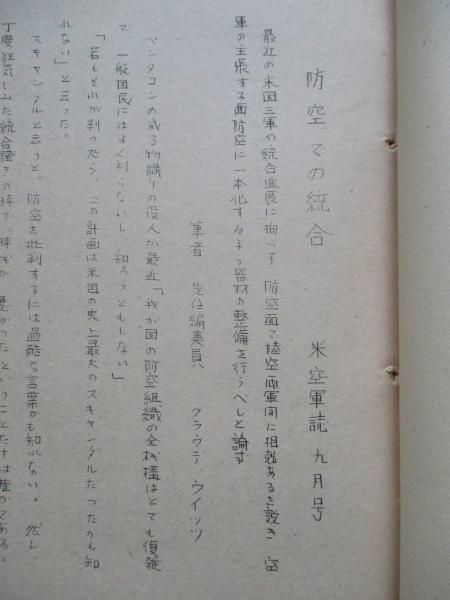 防空での統合　米空軍誌 九月号
最近の米国三軍の統合進展に拘らず 防空面で陸空両軍間に相剋あるを説き 空
軍の主張する面防空に一本化するよう器材の整備を行うべしと論ず
筆者 先任編集員 クラウデ、ウイッツ
ペンタゴンの或る物識りの役人が最近「我が国の防空組織の全機構はとても復雑
で、一般国民にはよく判らないし、知ろうともしない」
「若しそれが判ったら、この計画は米国の史上最大のスキャンダルだったかも知
れない」と云った。
スキャンダルと云うと、防空を批判するには過酷な言葉かも知れない。 然し
丁度狂気じみた統合騒ぎの時で、時機が悪かったということだけは確かである。